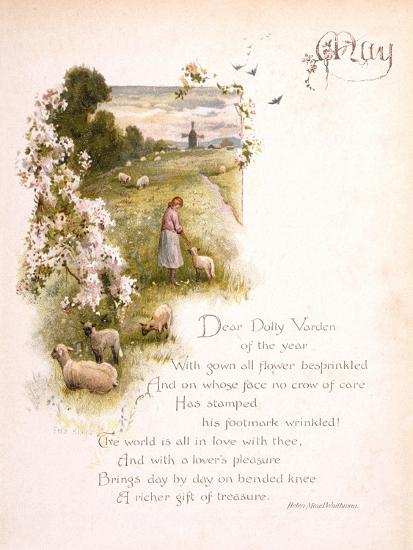 May
Dear Dolly Varden
of the year
With gown all flower besprinkled
And on whose face no crow of care
Has stamped
his footmark wrinkled!
The world is all in love with thee,
And with a lover's pleasure
Brings day by day on bended knee
A richer gift of treasure.
Helen Maud Waithman.